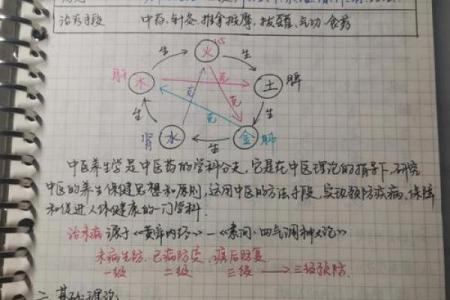 治疗手段 中药,针灸,推拿按摩,拔罐,气功,食药
生 火 心 生
肝 木 克 土 脾
生 克 克 生
肾 水 生 金 肺
中医养生学是中医药的学科分支,它是在中医理论的指导下,研究
中医的养生保健思想和原则,运用中医的方法手段,实现预防疾病,保障
和促进人体健康的一门学科.
治未病 源于《黄帝内经》—《素问·四气调神大论》
未病先防、已病防变、瘥后防复
一级 二级 三级 → 三级预防.
二、基础理论